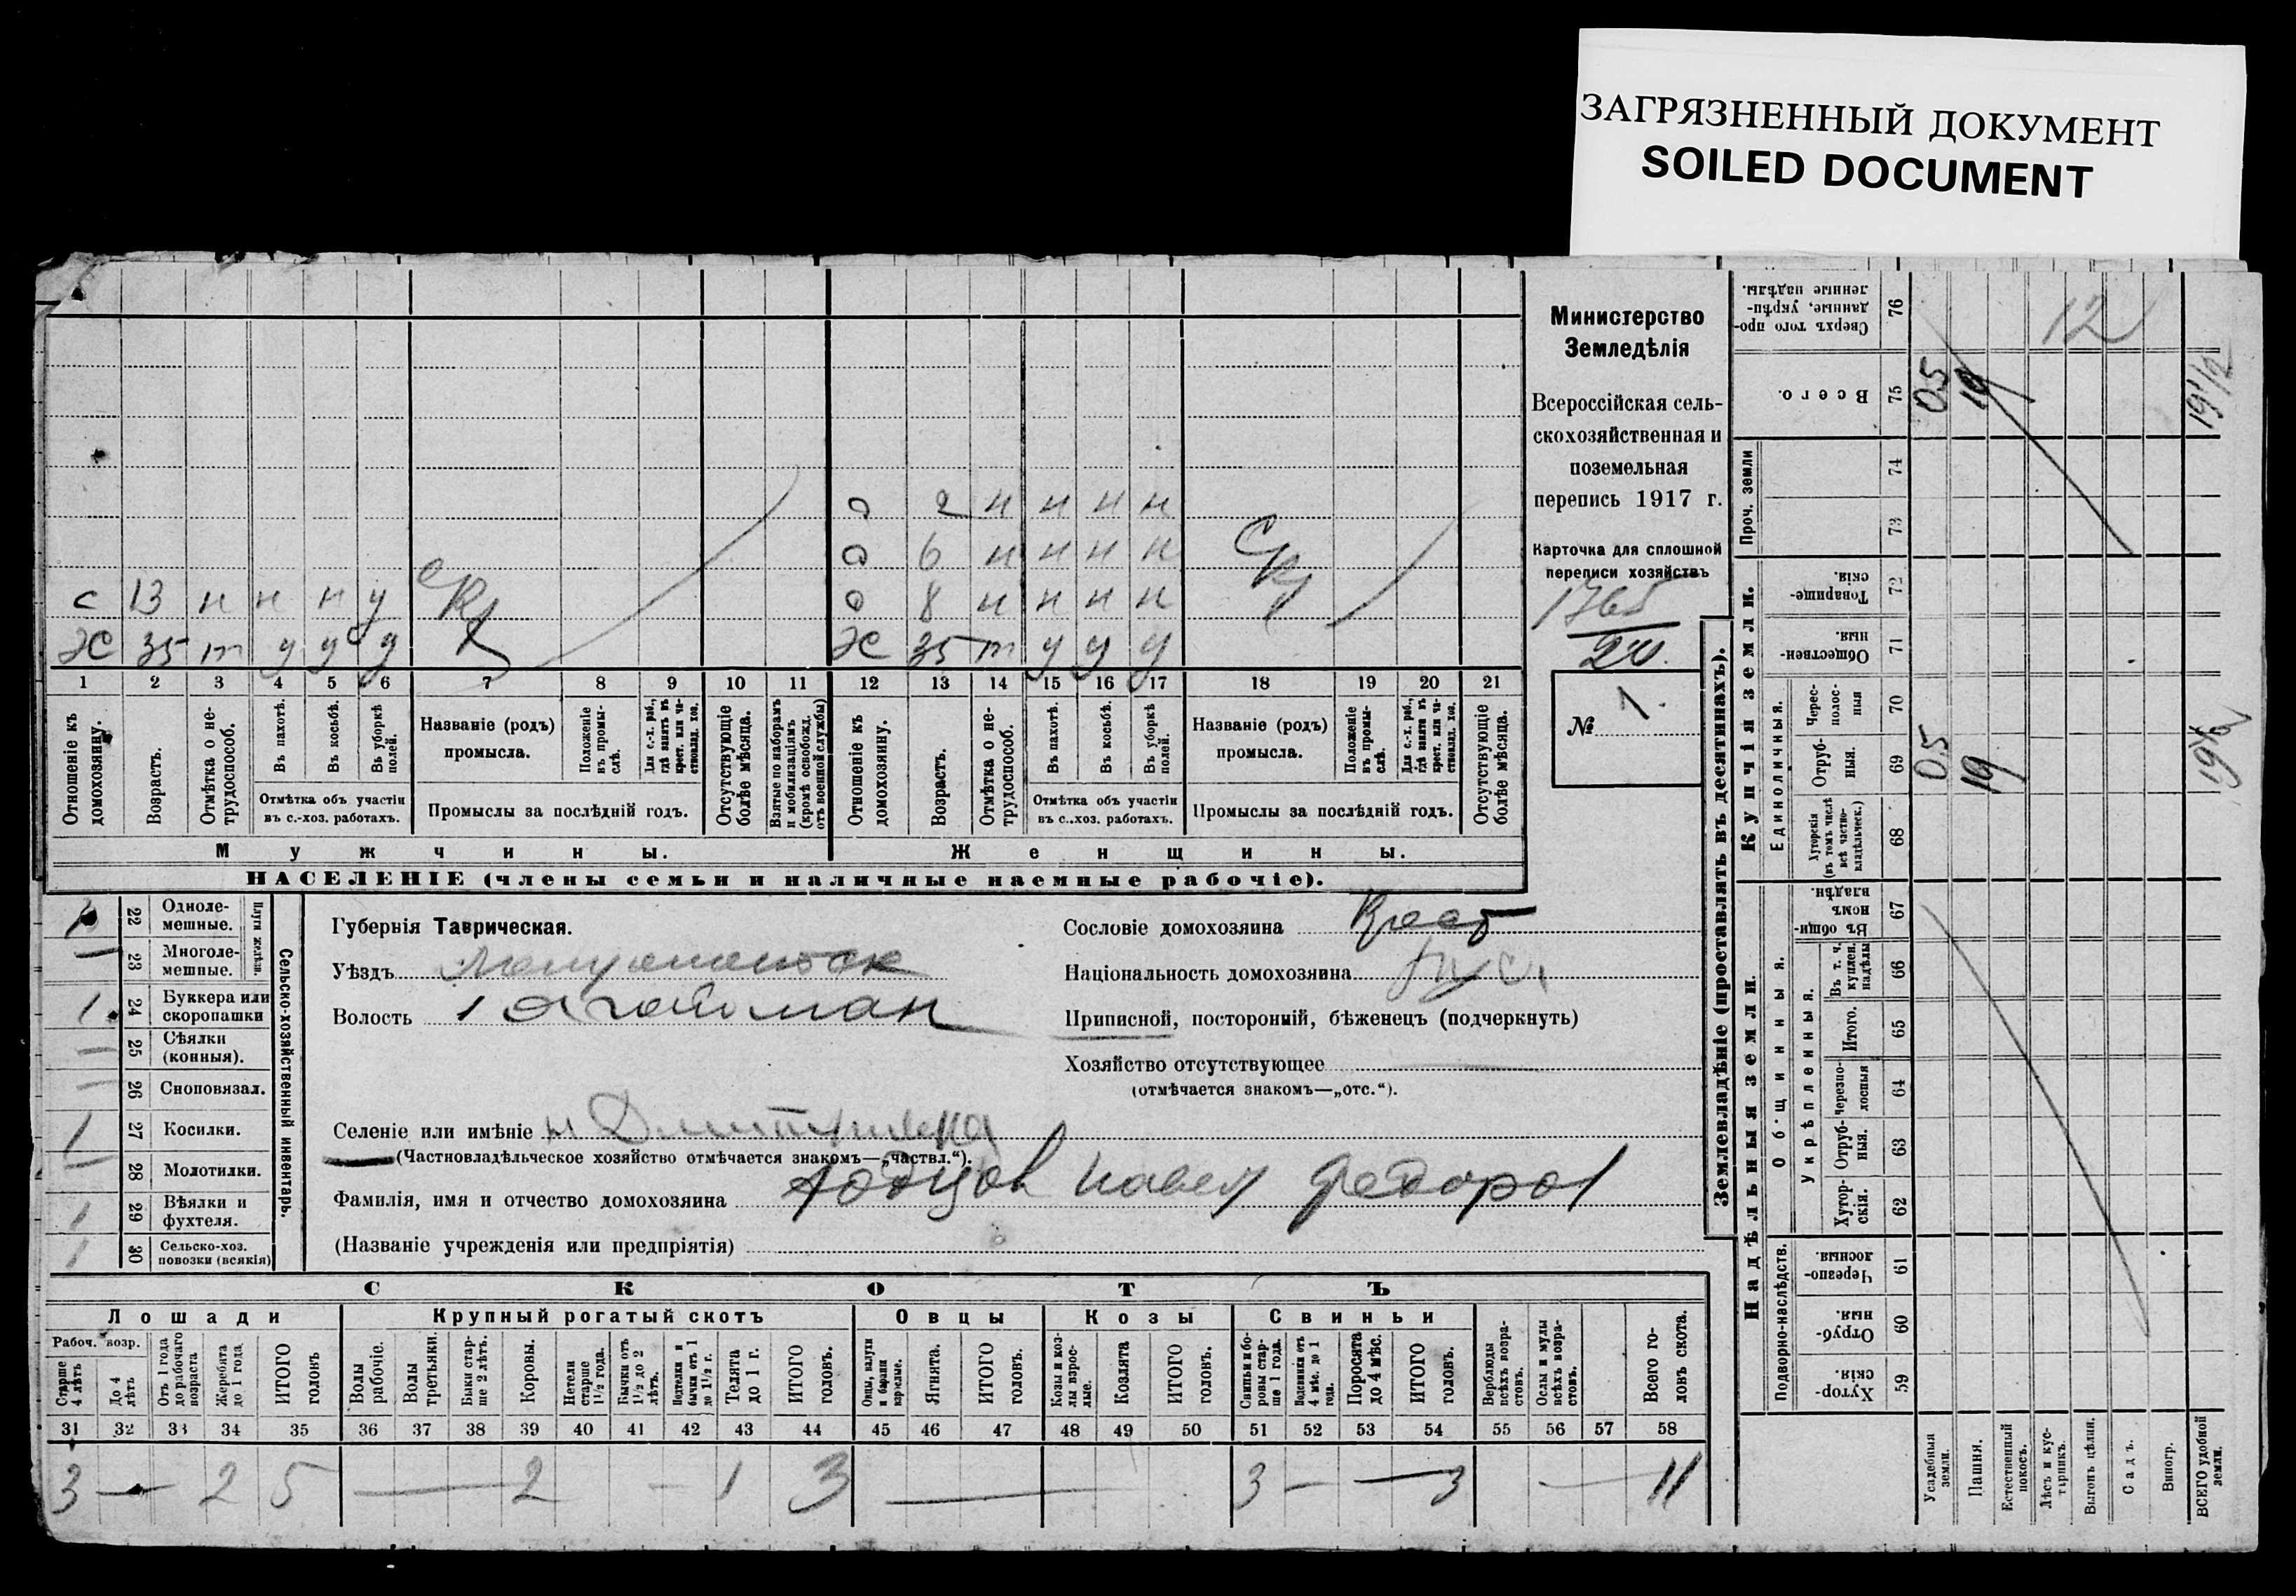 ЗАГРЯЗНЕННЫЙ ДОКУМЕНТ
SOILED DOCUMENT
о 2 н н н н
о 6 н н н н
с 13 н н н у
о 8 н н н н
Ж 35 т у у у
1 2 3 4 5 6 7 8 9 10 11 12 13 14 15 16 17 18 19 20 21
Отношеніе къ домохозяину.
Возрастъ.
Отмѣтка о не-трудоспособ.
Въ пахотѣ.
Въ косьбѣ.
Въ уборкѣ полей.
Отмѣтка объ участіи
въ с.-хоз. работахъ.
Названіе (родъ)
промысла.
Положеніе въ промы-слѣ.
Для с.-х. раб., гдѣ занятъ въ крест. или ча-стновлад. хоз.
Промыслы за послѣдній годъ.
Отсутствующіе болѣе мѣсяца.
Взятые по наборамъ и мобилизаціямъ (кромѣ освобожд. отъ военной службы)
Отношеніе къ домохозяину.
Возрастъ.
Отмѣтка о не-трудоспособ.
Въ пахотѣ.
Въ косьбѣ.
Въ уборкѣ полей.
Отмѣтка объ участіи
въ с.-хоз. работахъ.
Названіе (родъ)
промысла.
Положеніе въ промы-слѣ.
Для с.-х. раб., гдѣ занятъ въ крест. или ча-стновлад. хоз.
Промыслы за послѣдній годъ.
Отсутствующіе болѣе мѣсяца.
Мужчины. Женщины.
НАСЕЛЕНІЕ (члены семьи и наличные наемные рабочіе).
Министерство
Земледѣлія
Всероссійская сель-
скохозяйственная и
поземельная
перепись 1917 г.
Карточка для сплошной
переписи хозяйствъ
1765
20.
№ 1.
Плуги желѣзн.
22 Одноле-мешные.
— 23 Многоле-мешные.
1 24 Буккера или скоропашки
— 25 Сѣялки (конныя).
— 26 Сноповязал.
1 27 Косилки.
— 28 Молотилки.
1 29 Вѣялки и фухтеля.
1 30 Сельско-хоз. повозки (всякія)
Сельско-хозяйственный инвентарь.
Губернія Таврическая.
Уѣздъ
Волость
Сословіе домохозяина Крест
Національность домохозяина
Приписной, посторонній, бѣженецъ (подчеркнуть)
Хозяйство отсутствующее
(отмѣчается знакомъ—„отс.“).
Селеніе или имѣніе
(Частновладѣльческое хозяйство отмѣчается знакомъ—„частвл.“).
Фамилія, имя и отчество домохозяина Павел Федоров
(Названіе учрежденія или предпріятія)
СКОТЪ
Лошади Крупный рогатый скотъ Овцы Козы Свиньи
Рабоч. возр.
Старше 4 лѣтъ
До 4 лѣтъ
Отъ 1 года до рабочаго возраста
Жеребята до 1 года
ИТОГО головъ
Волы рабочіе.
Волы третьяки.
Быки стар-ше 2 лѣтъ.
Коровы.
Нетели старше 1½ года.
Бычки отъ 1½ до 2 лѣтъ.
Подтелки и бычки отъ 1 до 1½ г.
Телята до 1 г.
ИТОГО головъ.
Овцы, валухи и бараны взрослые.
Ягнята.
ИТОГО головъ.
Козы и коз-лы взрос-лые.
Козлята
ИТОГО головъ.
Свиньи и бо-ровы стар-ше 1 года.
Подсвинки отъ 4 мѣс. до 1 года.
Поросята до 4 мѣс.
ИТОГО головъ.
Верблюды всѣхъ возра-стовъ.
Ослы и мулы всѣхъ возра-стовъ.
Всего го-ловъ скота.
31 32 33 34 35 36 37 38 39 40 41 42 43 44 45 46 47 48 49 50 51 52 53 54 55 56 57 58
3 — 2 5 — 2 — 1 3 — 3 — — 3 — 11
Землевладѣніе (проставлять въ десятинахъ).
Купчія земли.
Надѣльныя земли.
Сверхъ того про-данные, укрѣп-ленные надѣлы. 76 12
Всего. 75 0.5 19 19 1/2
Проч. земли 74
73
Товарище-скія. 72
Обществен-ныя. 71
Единоличныя.
Черес-полос-ныя 70
Отруб-ныя. 69 0.5 19 19 1/2
Хуторскія (въ томъ числѣ всѣ частно-владѣльческ.) 68
Общинныя.
Въ общин-номъ владѣн. 67
Укрѣпленныя.
Въ т. ч. куплен. надѣлы 66
Итого. 65
Черезпо-лосныя 64
Отруб-ныя. 63
Хутор-скія. 62
Подворно-наслѣдств.
Черезпо-лосныя. 61
Отруб-ныя. 60
Хутор-скія. 59
Усадебныя земли.
Пашня.
Естественный покосъ.
Лѣсъ и кус-тарникъ.
Выгонъ цѣлин.
Садъ.
Виногр.
ВСЕГО удобной земли.